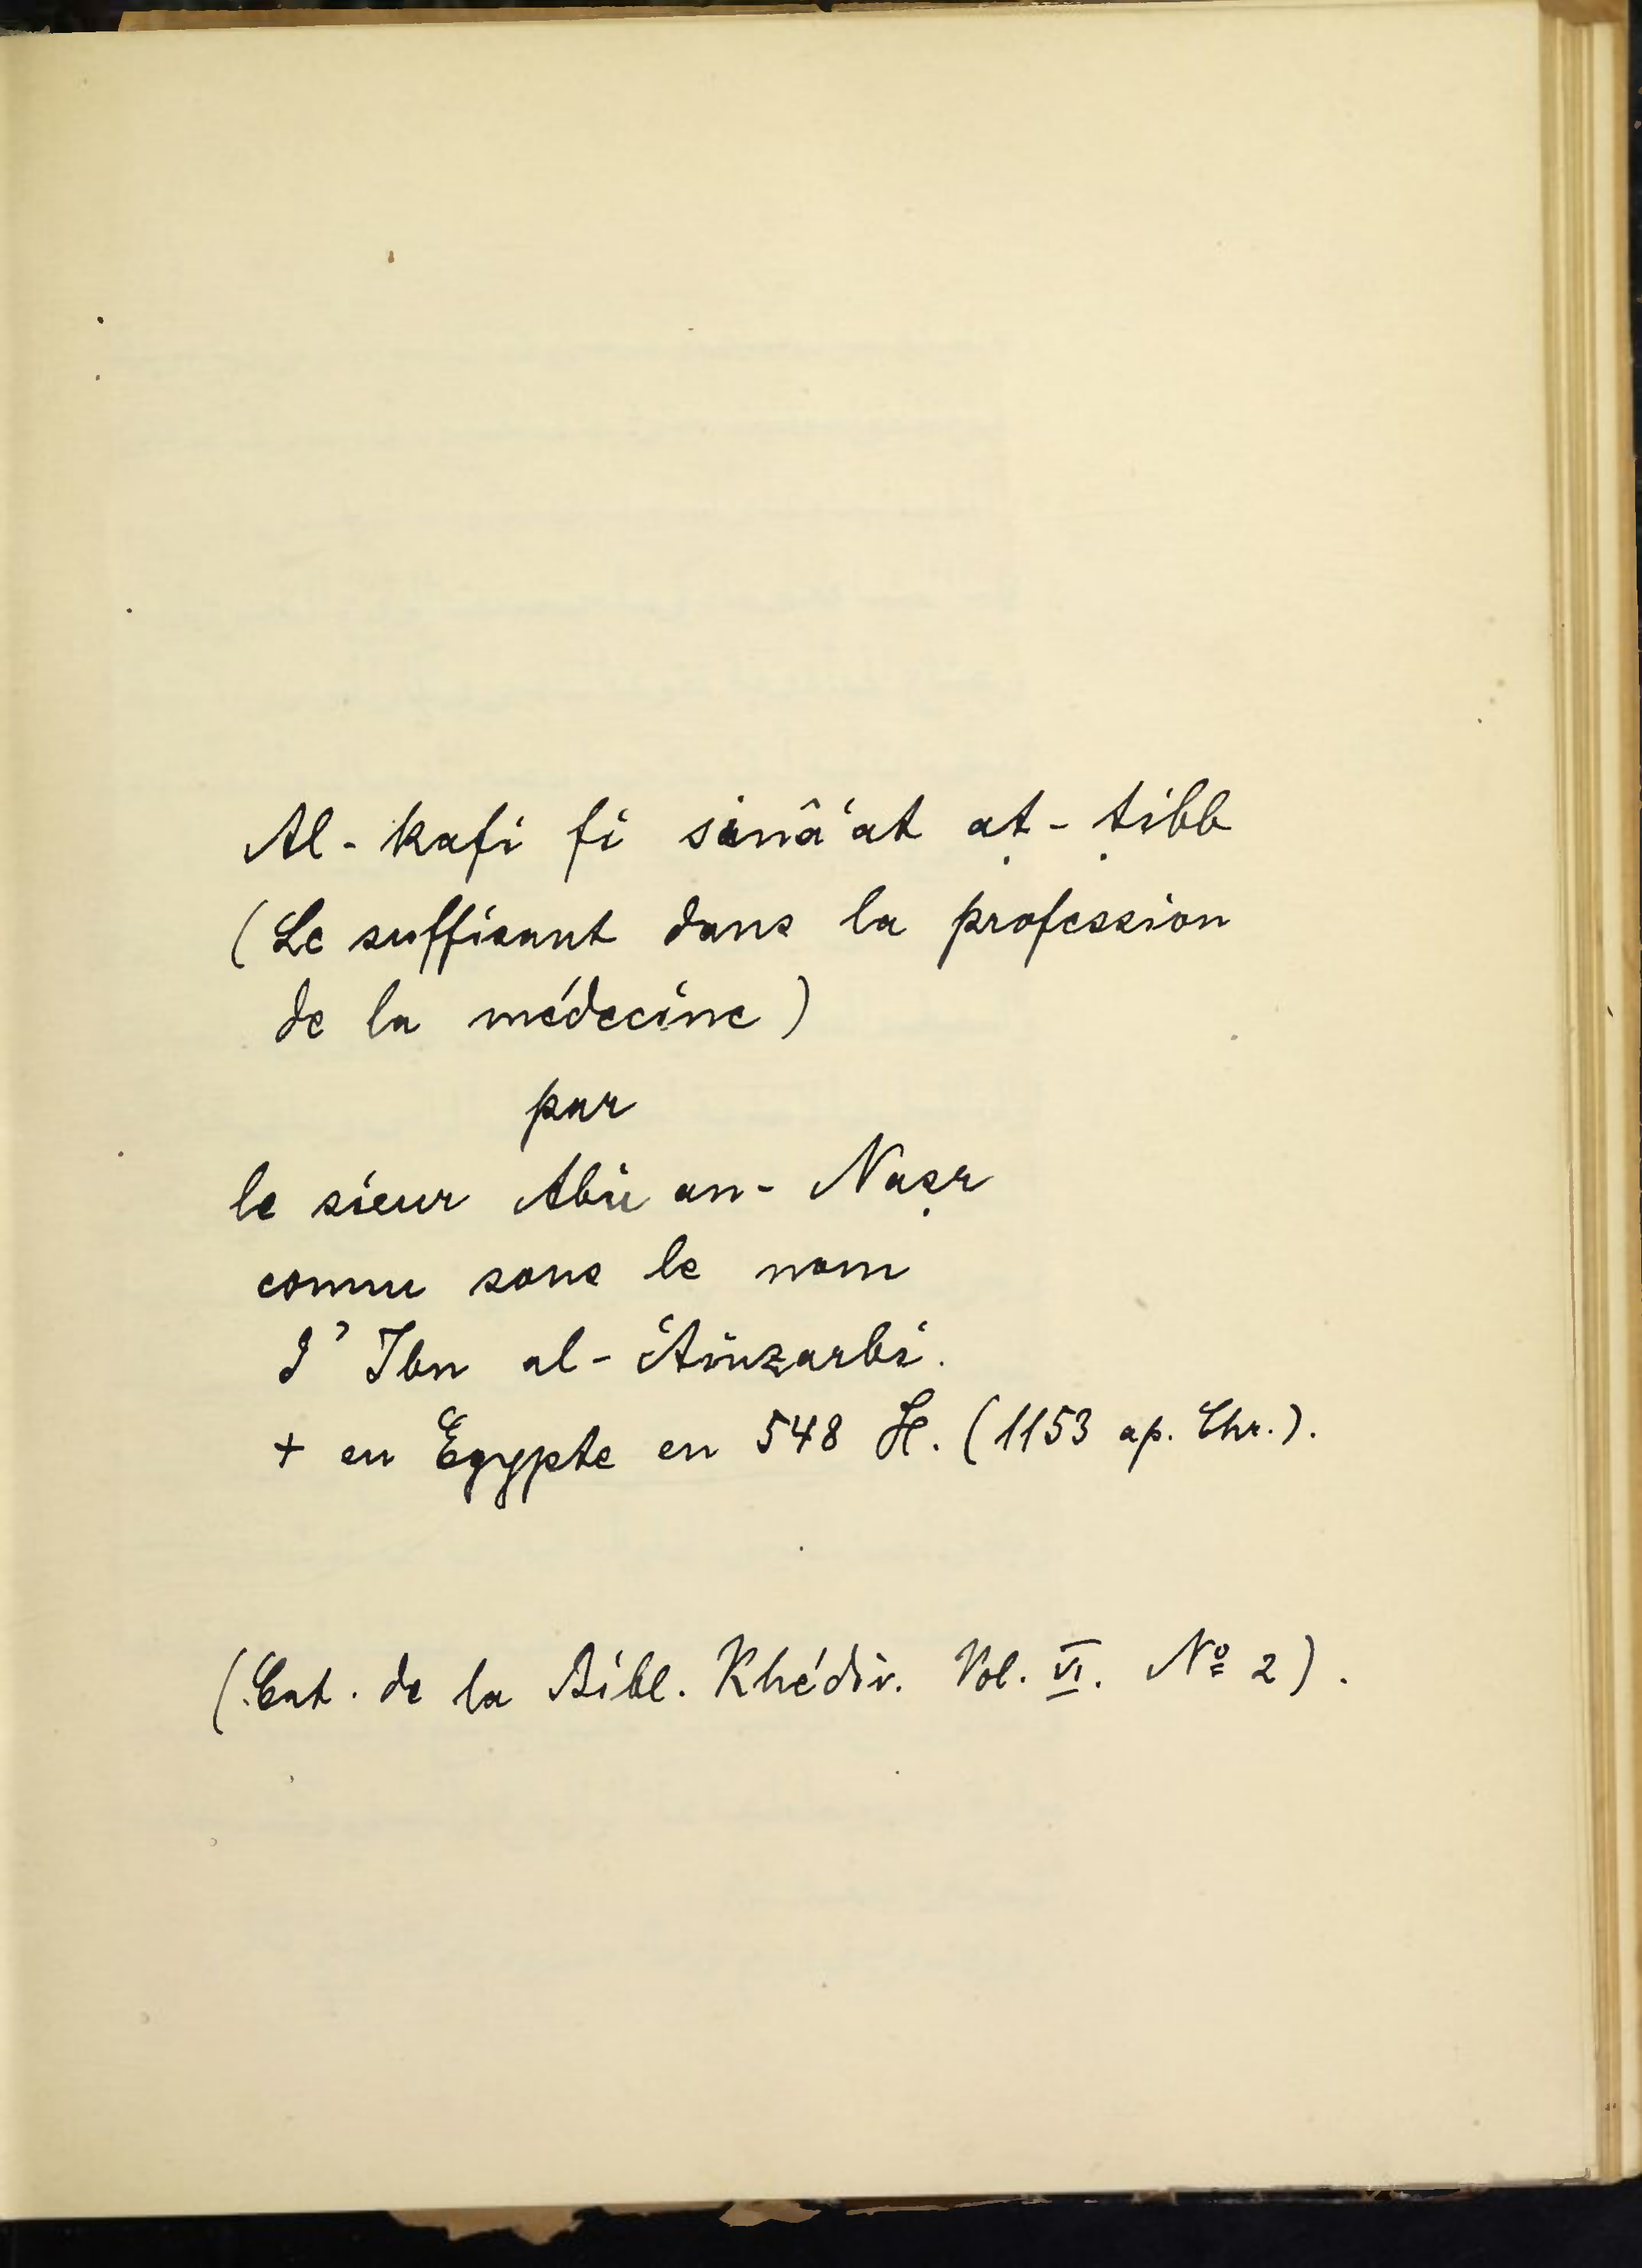 Al-kafi fi sinâ'at aṭ-ṭibb
(Le suffisant dans la profession
de la médecine)
par
le sieur Abû an-Naṣr
connu sous le nom
d'Ibn al-'Ainzarbi.
+ en Egypte en 548 H. (1153 ap. Chr.).
(Cat. de la Bibl. Khédiv. Vol. VI. Nº 2).